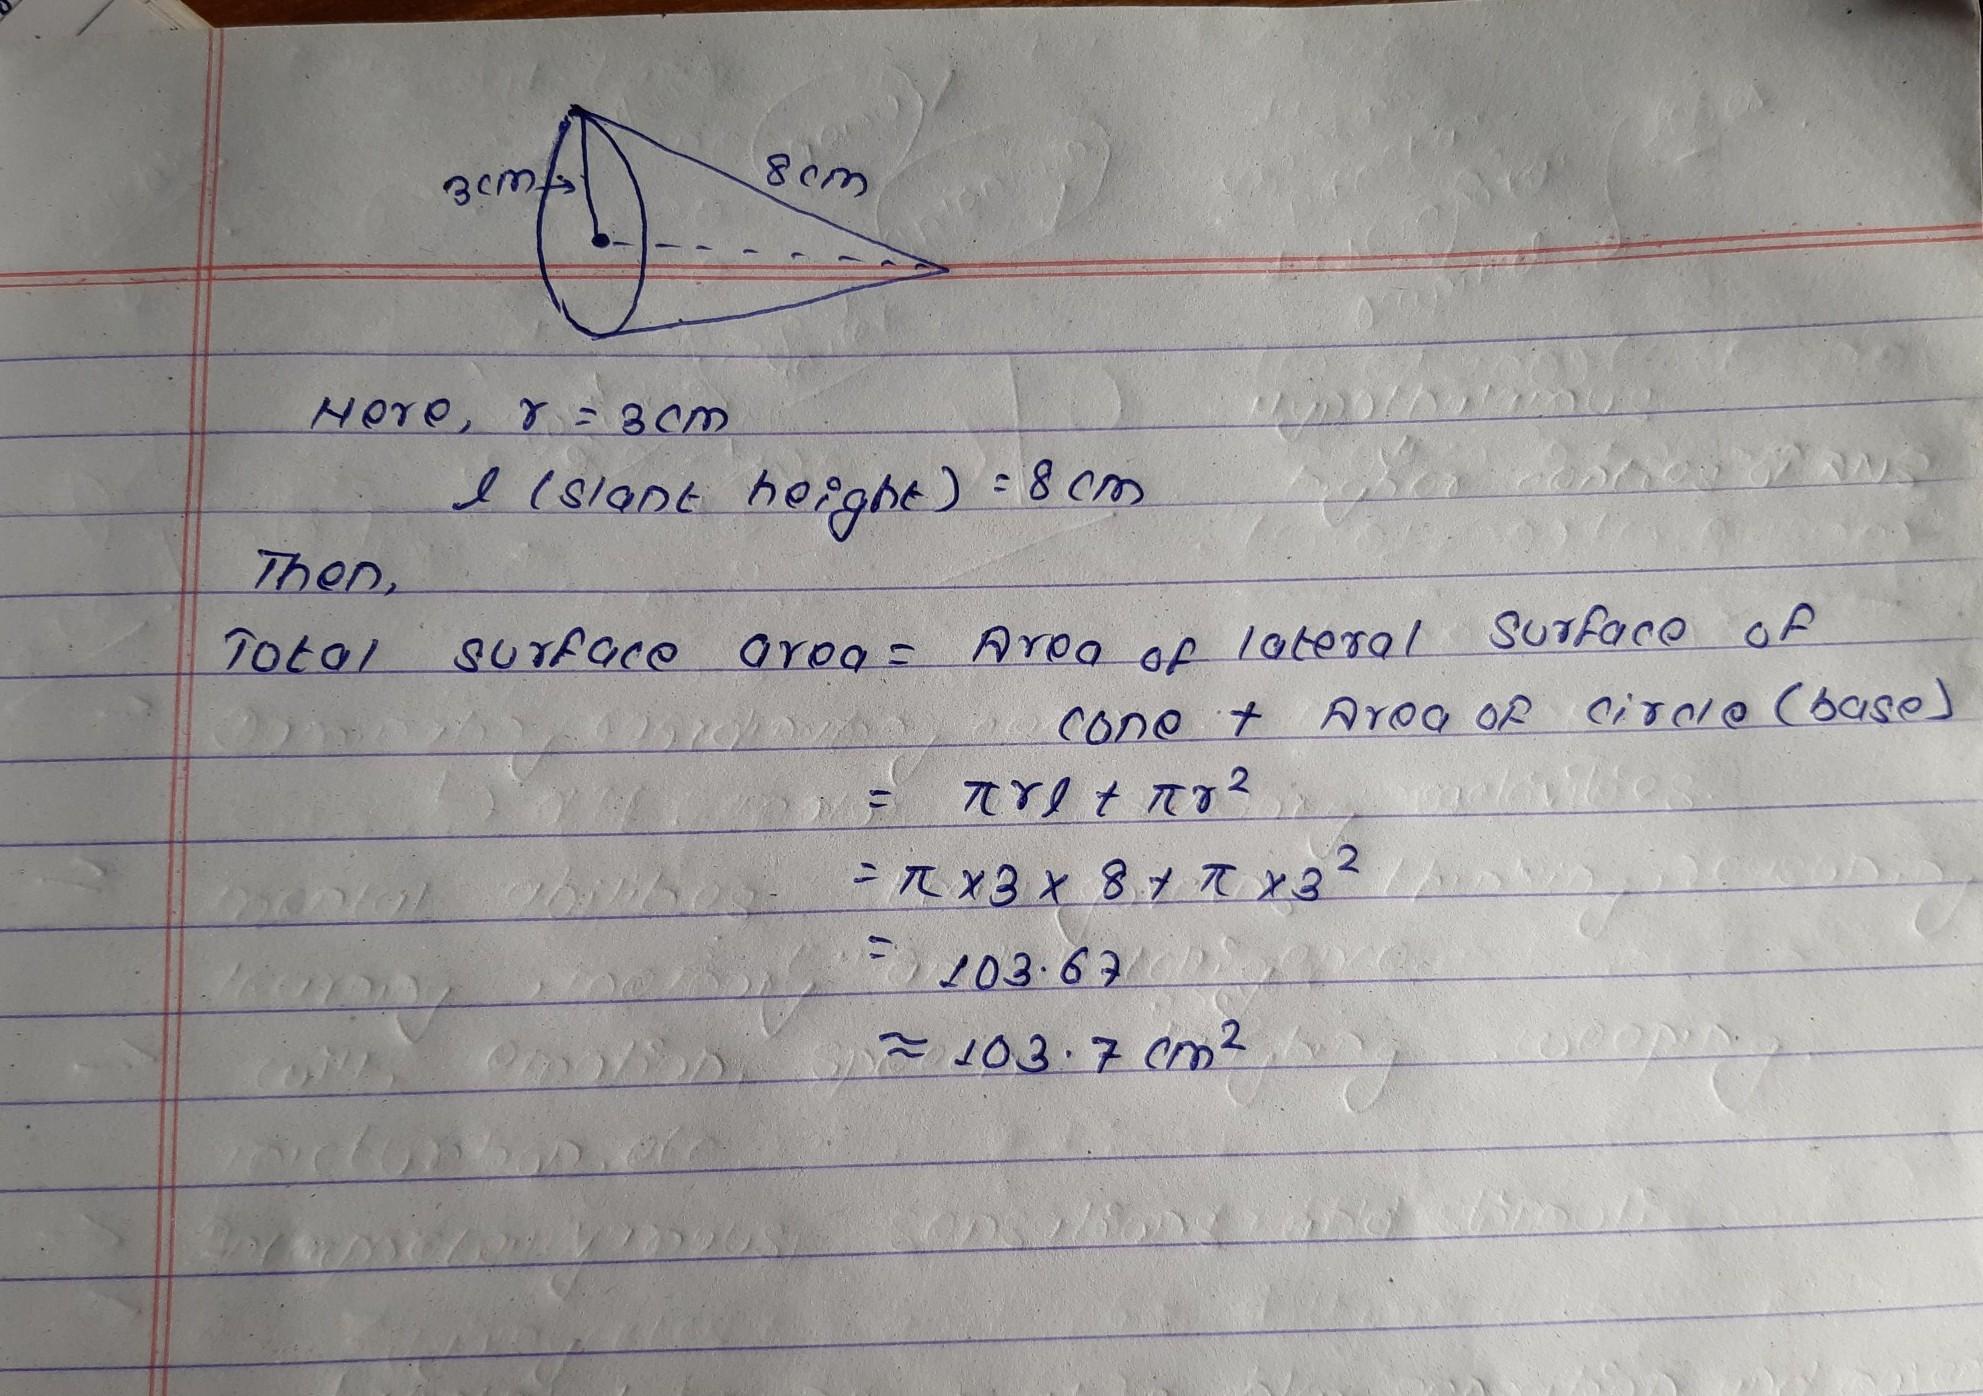 3cm→
8cm
Here, r = 3cm
l (slant height) = 8cm
Then,
Total surface area = Area of lateral surface of
cone + Area of circle (base)
= πrl + πr²
= π×3×8 + π×3²
= 103.67
≈ 103.7 cm²